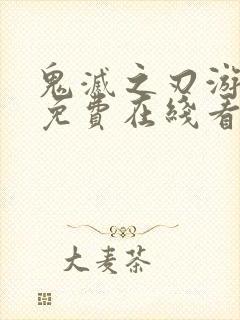 鬼滅之刃游
免費在綫看
大麦茶